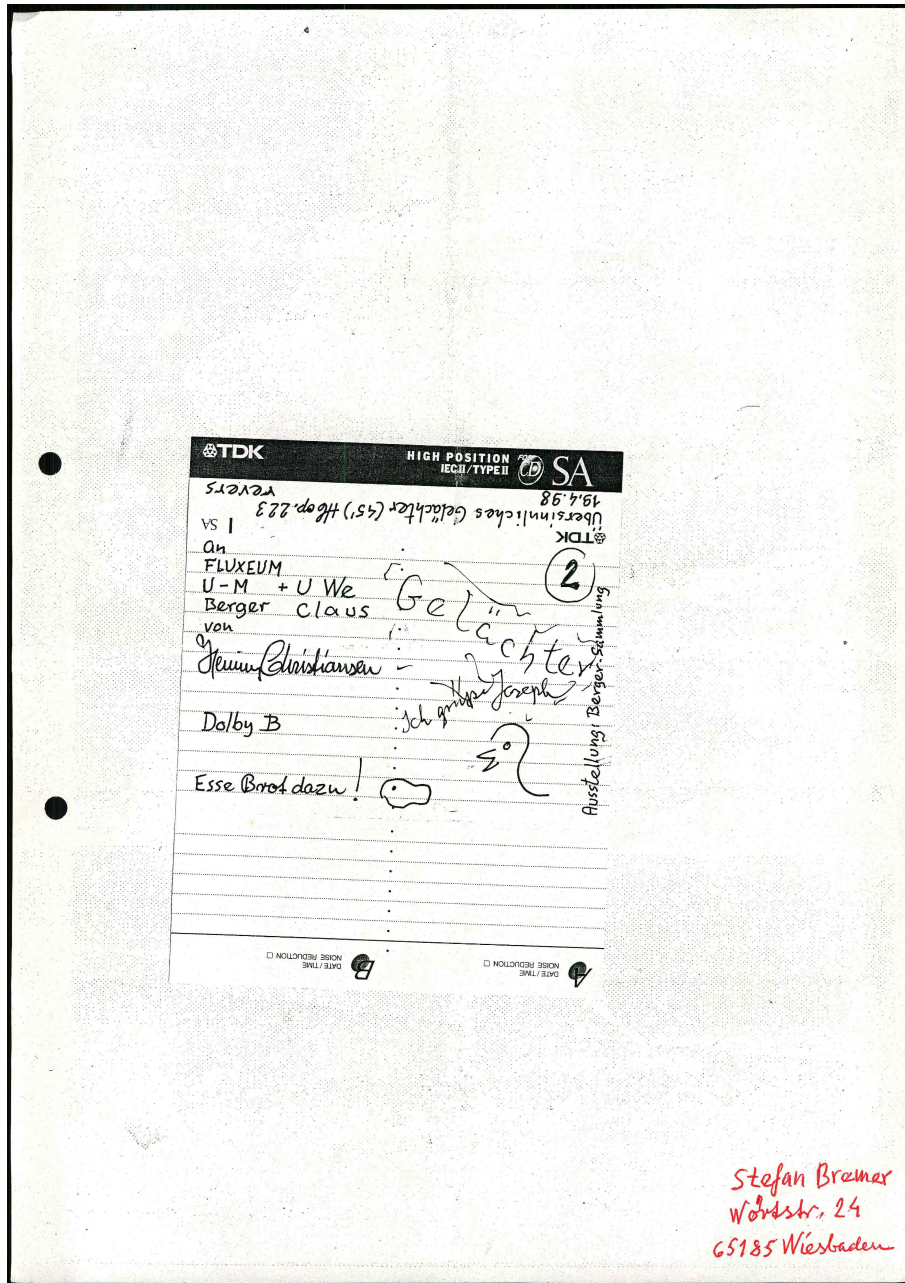 TDK
HIGH POSITION
IECII/TYPE II
FOR CD
SA
19.4.98
Übersinnliches Gelächter (45') Hop. 223
revers
TDK
SA
2
an
FLUXEUM
U-M + U We
Berger Claus
von
Henning Christiansen
Gelächter
Ich grüße Joseph
Dolby B
Esse Brot dazu!
Ausstellung: Berger-Sammlung
A
DATE / TIME
NOISE REDUCTION
B
DATE / TIME
NOISE REDUCTION
Stefan Bremer
Wörtstr. 24
65185 Wiesbaden